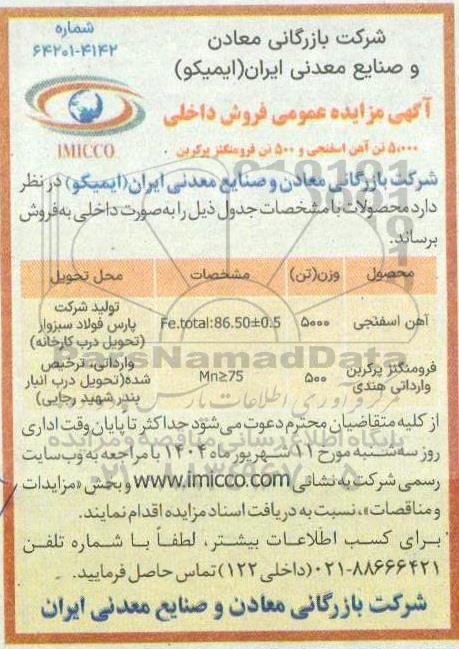 شرکت بازرگانی معادن
و صنایع معدنی ایران(ایمیکو)
شماره
۶۴۲۰۱-۴۱۴۲
آگهی مزایده عمومی فروش داخلی
۵،۰۰۰ تن آهن اسفنجی و ۵۰۰ تن فرومنگنز پرکربن
IMICCO
شرکت بازرگانی معادن و صنایع معدنی ایران(ایمیکو) در نظر
دارد محصولات با مشخصات جدول ذیل را به صورت داخلی به فروش
برساند.
محصول وزن(تن) مشخصات محل تحویل
آهن اسفنجی ۵۰۰۰ Fe.total:86.50±0.5 تولید شرکت
پارس فولاد سبزوار
(تحویل درب کارخانه)
فرومنگنز پرکربن
وارداتی هندی ۵۰۰ Mn≥75 وارداتی، ترخیص
شده(تحویل درب انبار
بندر شهید رجایی)
از کلیه متقاضیان محترم دعوت می‌شود حداکثر تا پایان وقت اداری
روز سه‌شنبه مورخ ۱۱ شهریور ماه ۱۴۰۴ با مراجعه به وب‌سایت
رسمی شرکت به نشانی www.imicco.com و بخش «مزایدات
و مناقصات»، نسبت به دریافت اسناد مزایده اقدام نمایند.
برای کسب اطلاعات بیشتر، لطفاً با شماره تلفن
۰۲۱-۸۸۶۶۶۴۲۱ (داخلی ۱۲۲) تماس حاصل فرمایید.
شرکت بازرگانی معادن و صنایع معدنی ایران
ParsNamadData